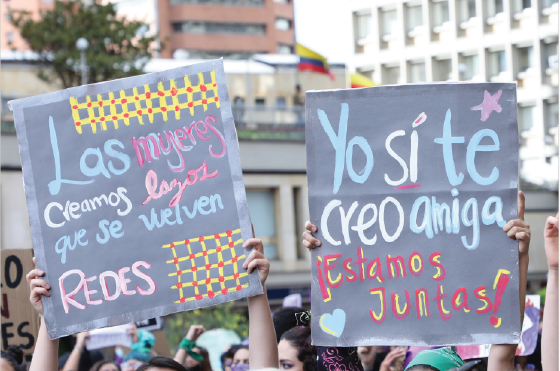 Las mujeres
creamos lazos
que se vuelven
REDES
Yo sí te
creo amiga
¡Estamos
Juntas!